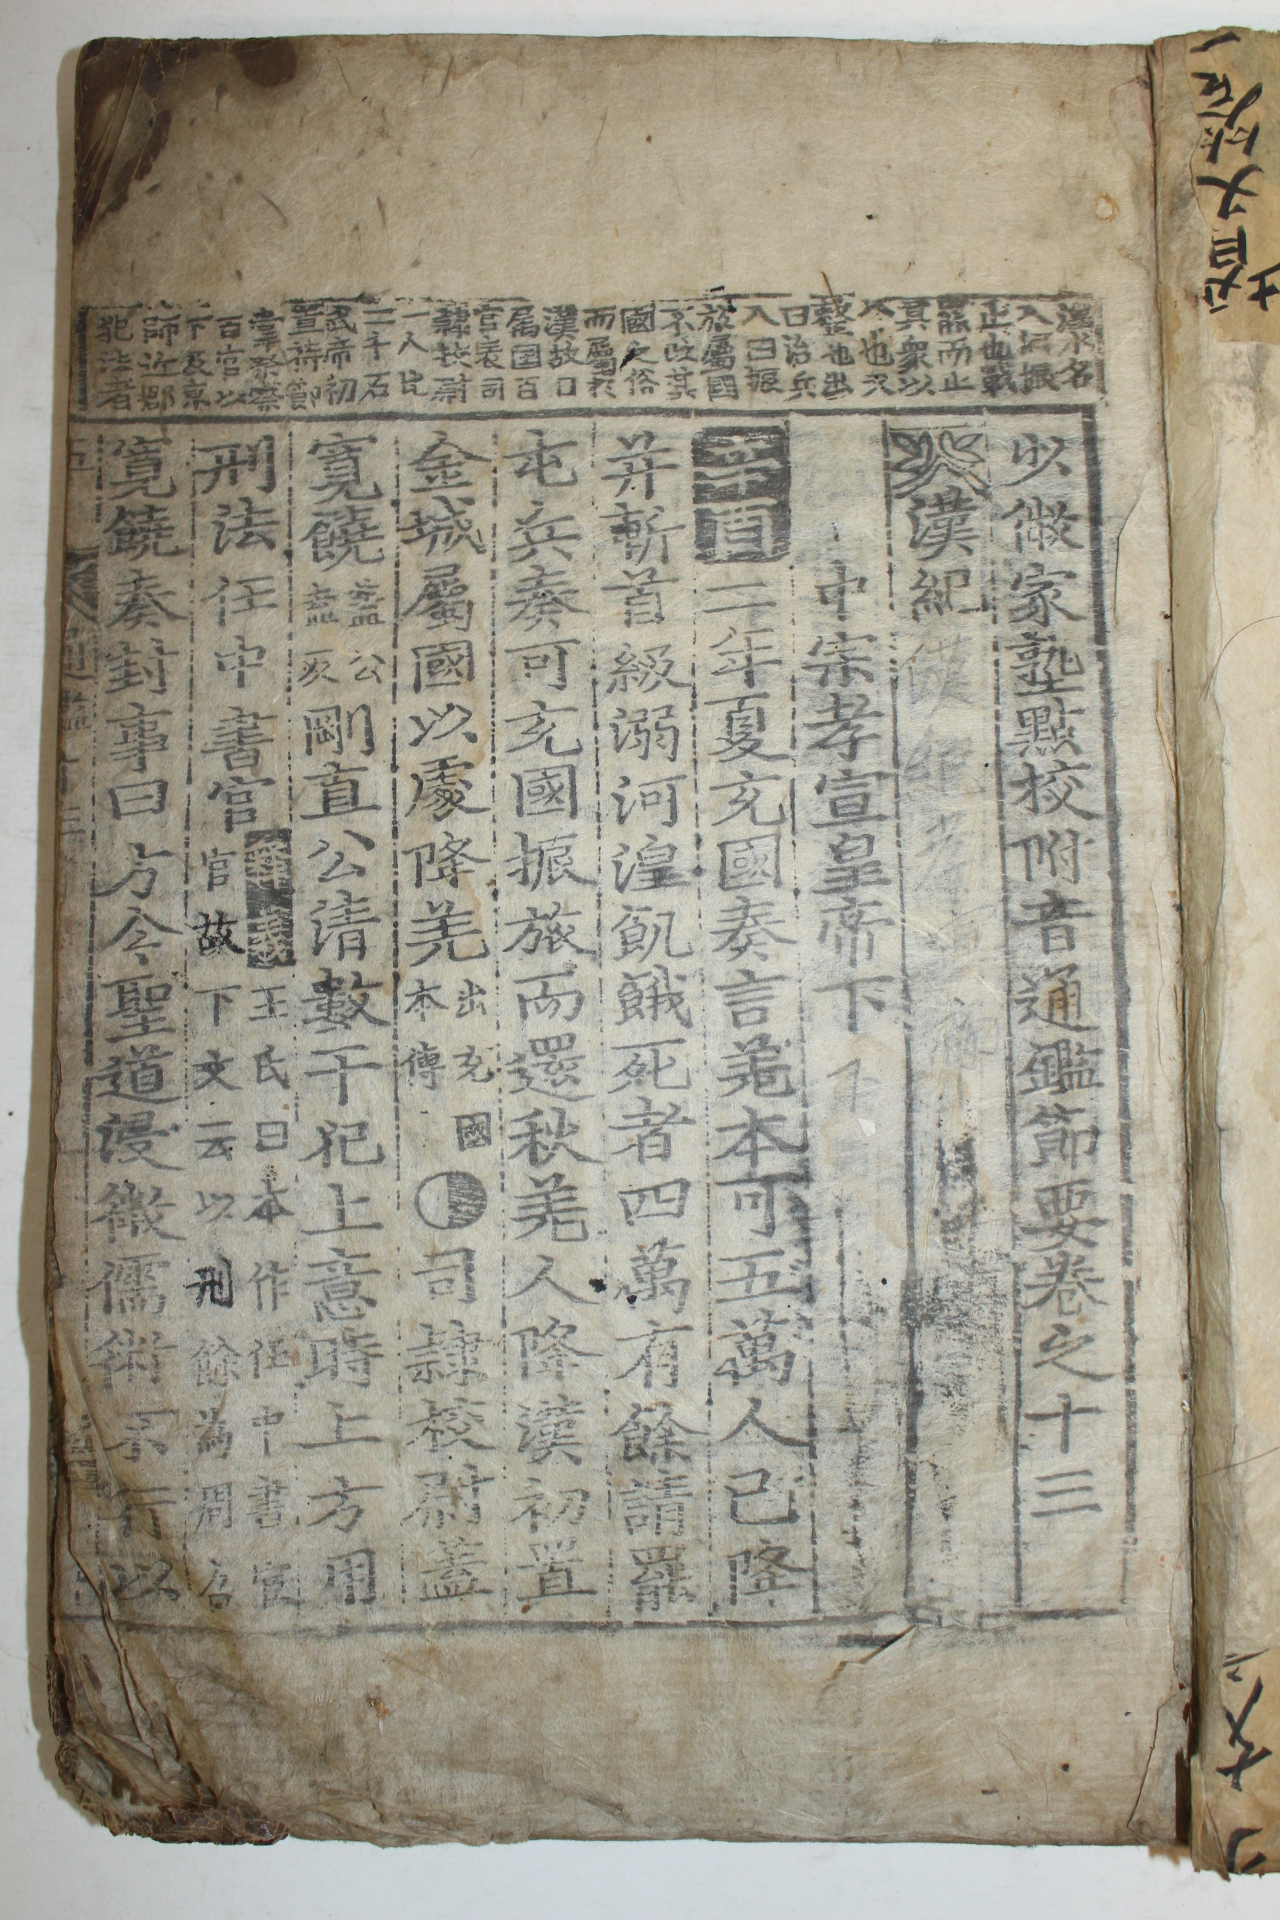 湟水名
入曰振
止也戰
罷而止
其衆以
入也又
整也出
曰治兵
入曰振
於屬國
不改其
國之俗
而屬於
漢故曰
屬國百
官表司
隸校尉
一人
二千石
武帝初
置待節
掌察
百官以
下及京
師近郡
犯法者
少微家塾點校附音通鑑節要卷之十三
漢紀
中宗孝宣皇帝下
二年夏充國奏言羌本可五萬人已降
并斬首級溺河湟飢餓死者四萬有餘請罷
屯兵奏可充國振旅而還秋羌人降漢初置
金城屬國以處降羌
出充國
本傳
司隸校尉蓋
寬饒
蓋公
亥
剛直公清數干犯上意時上方用
刑法任中書官
王氏曰本作任中書官
官故下文云以刑餘為周召
寬饒奏封事曰方今聖道浸微儒術不行以